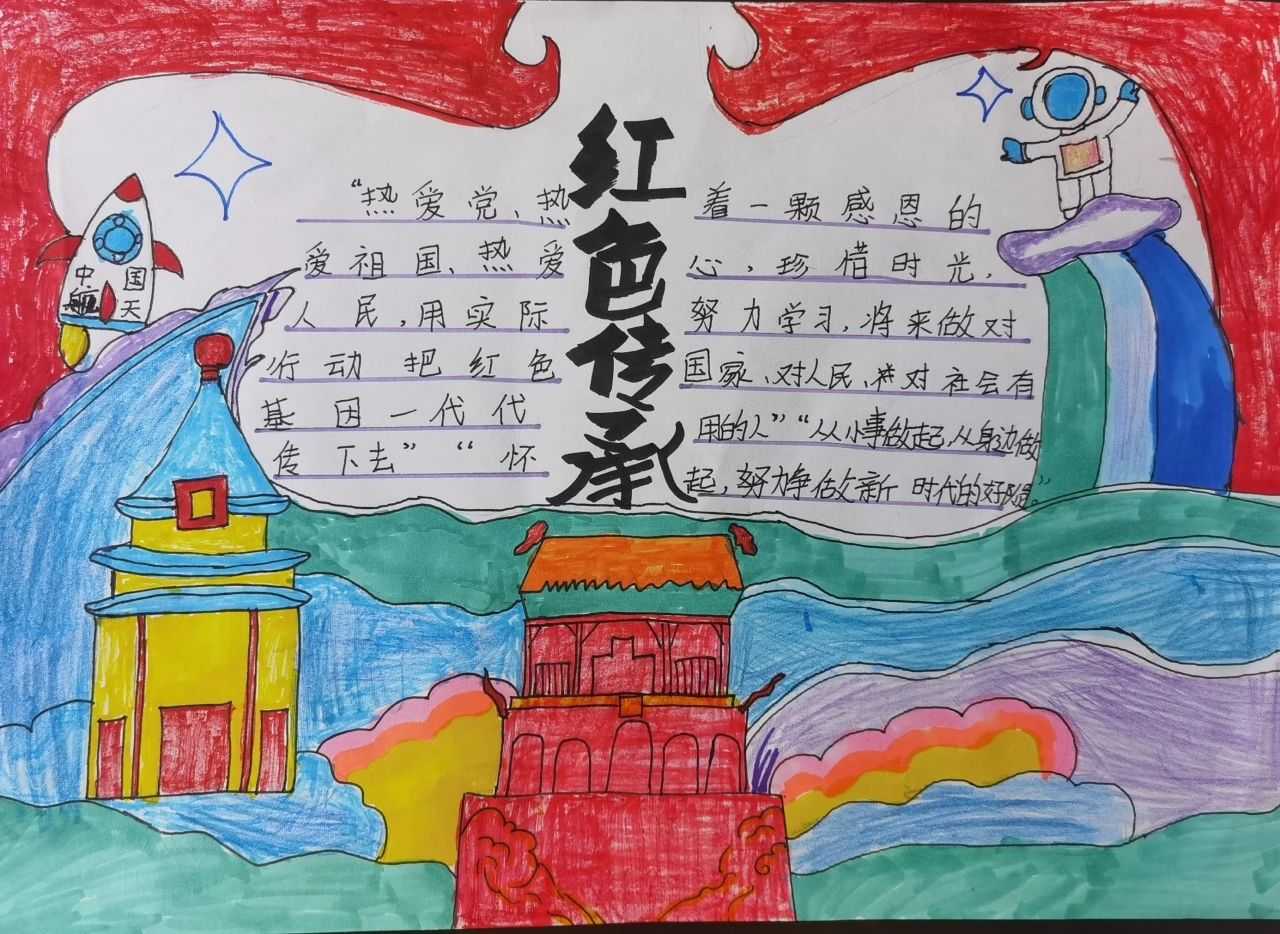 红色传承
"热爱党、热
爱祖国、热爱
人民,用实际
行动把红色
基因一代代
传下去" "怀
着一颗感恩的
心,珍惜时光,
努力学习,将来做对
国家、对人民、对社会有
用的人" "从小事做起,从身边做
起,努力争做新时代的好队员。"
中国
航天